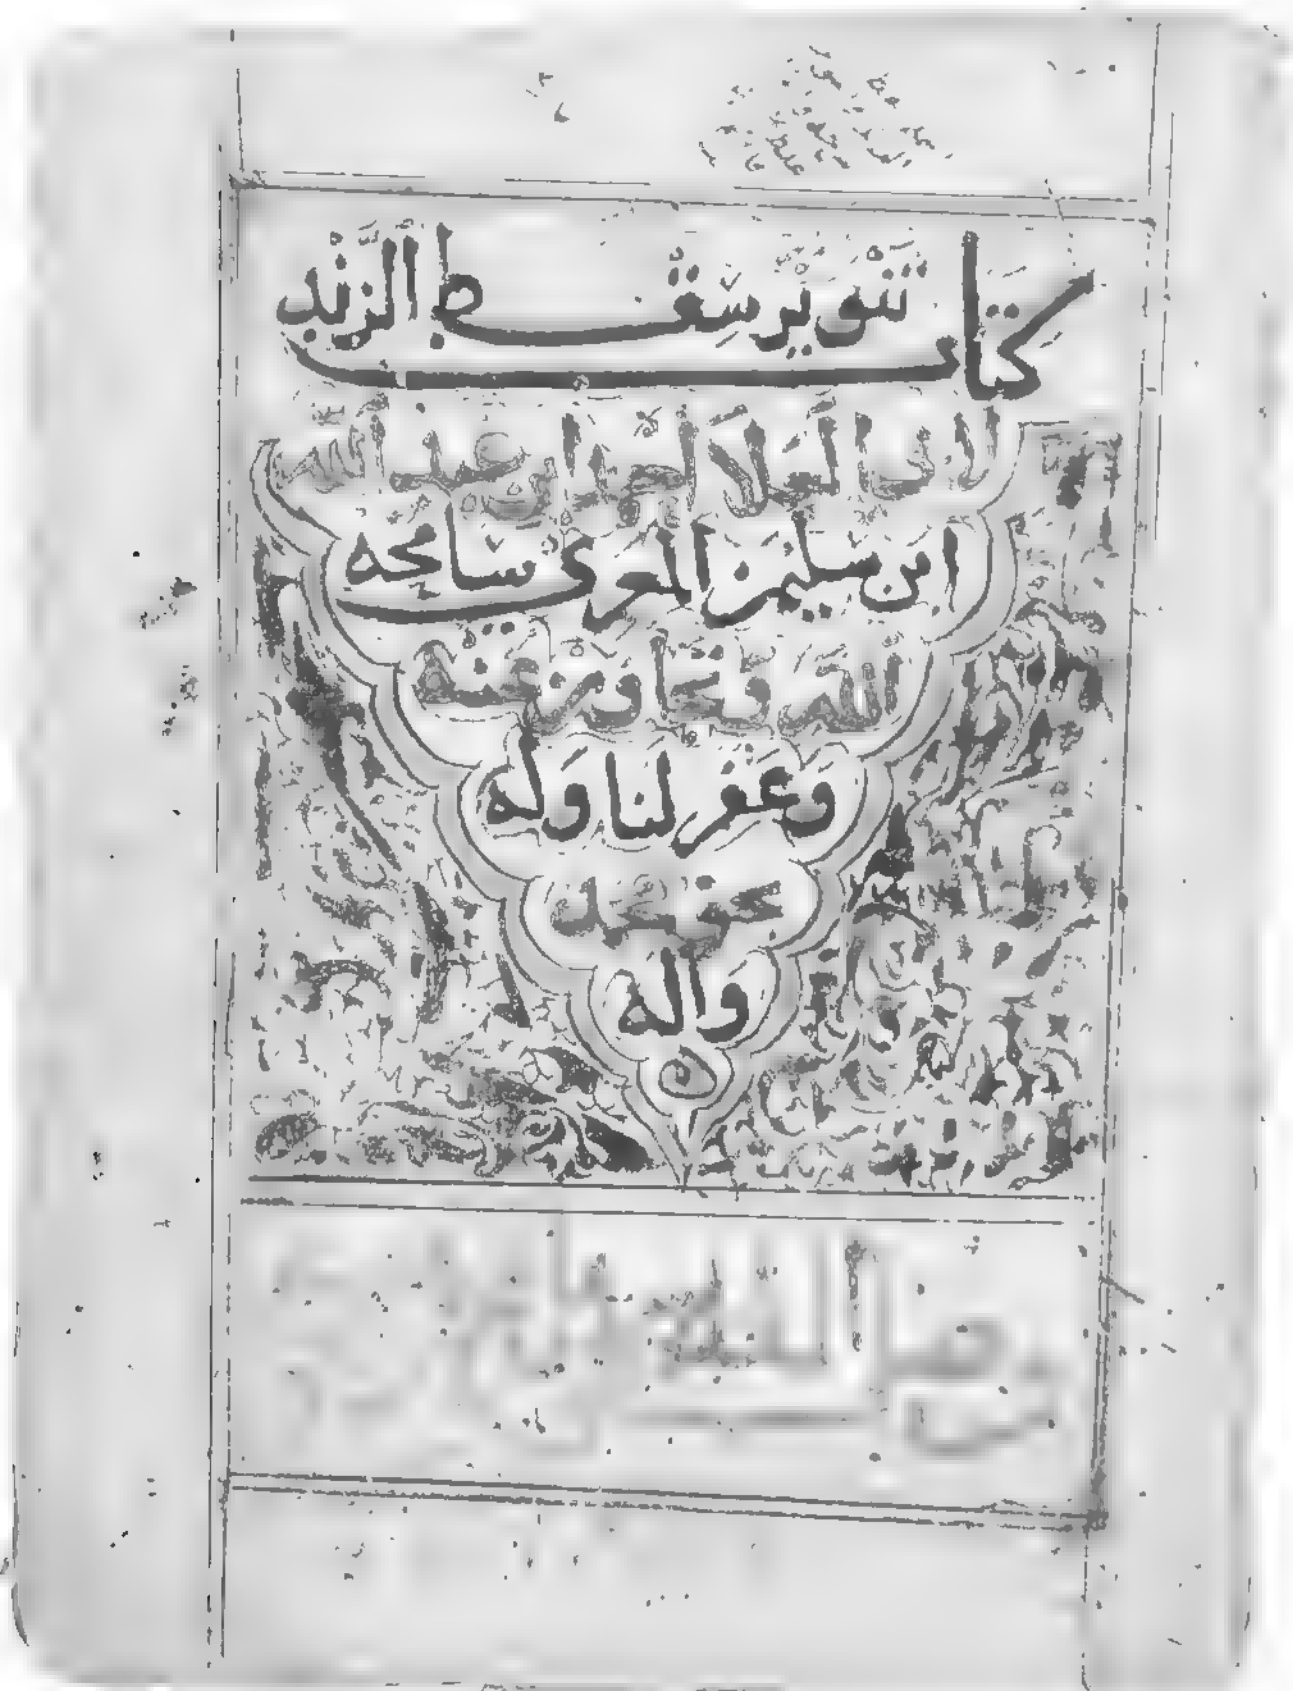 كتاب تنوير سقط الزند
لابى العلا احمد ابن عبد الله
ابن سليمن المعرى سامحه
الله وتجاوز عنه
وغفر لنا وله
بحق محمد
واله